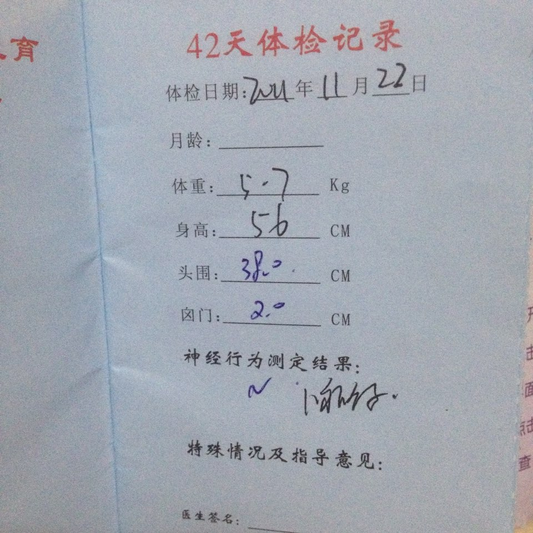 育
42天体检记录
体检日期:2011年11月22日
月龄:
体重: 5.7 Kg
身高: 56 CM
头围: 38.0 CM
囟门: 2.0 CM
神经行为测定结果:
~
特殊情况及指导意见:
医生签名:
击
面
点击
查